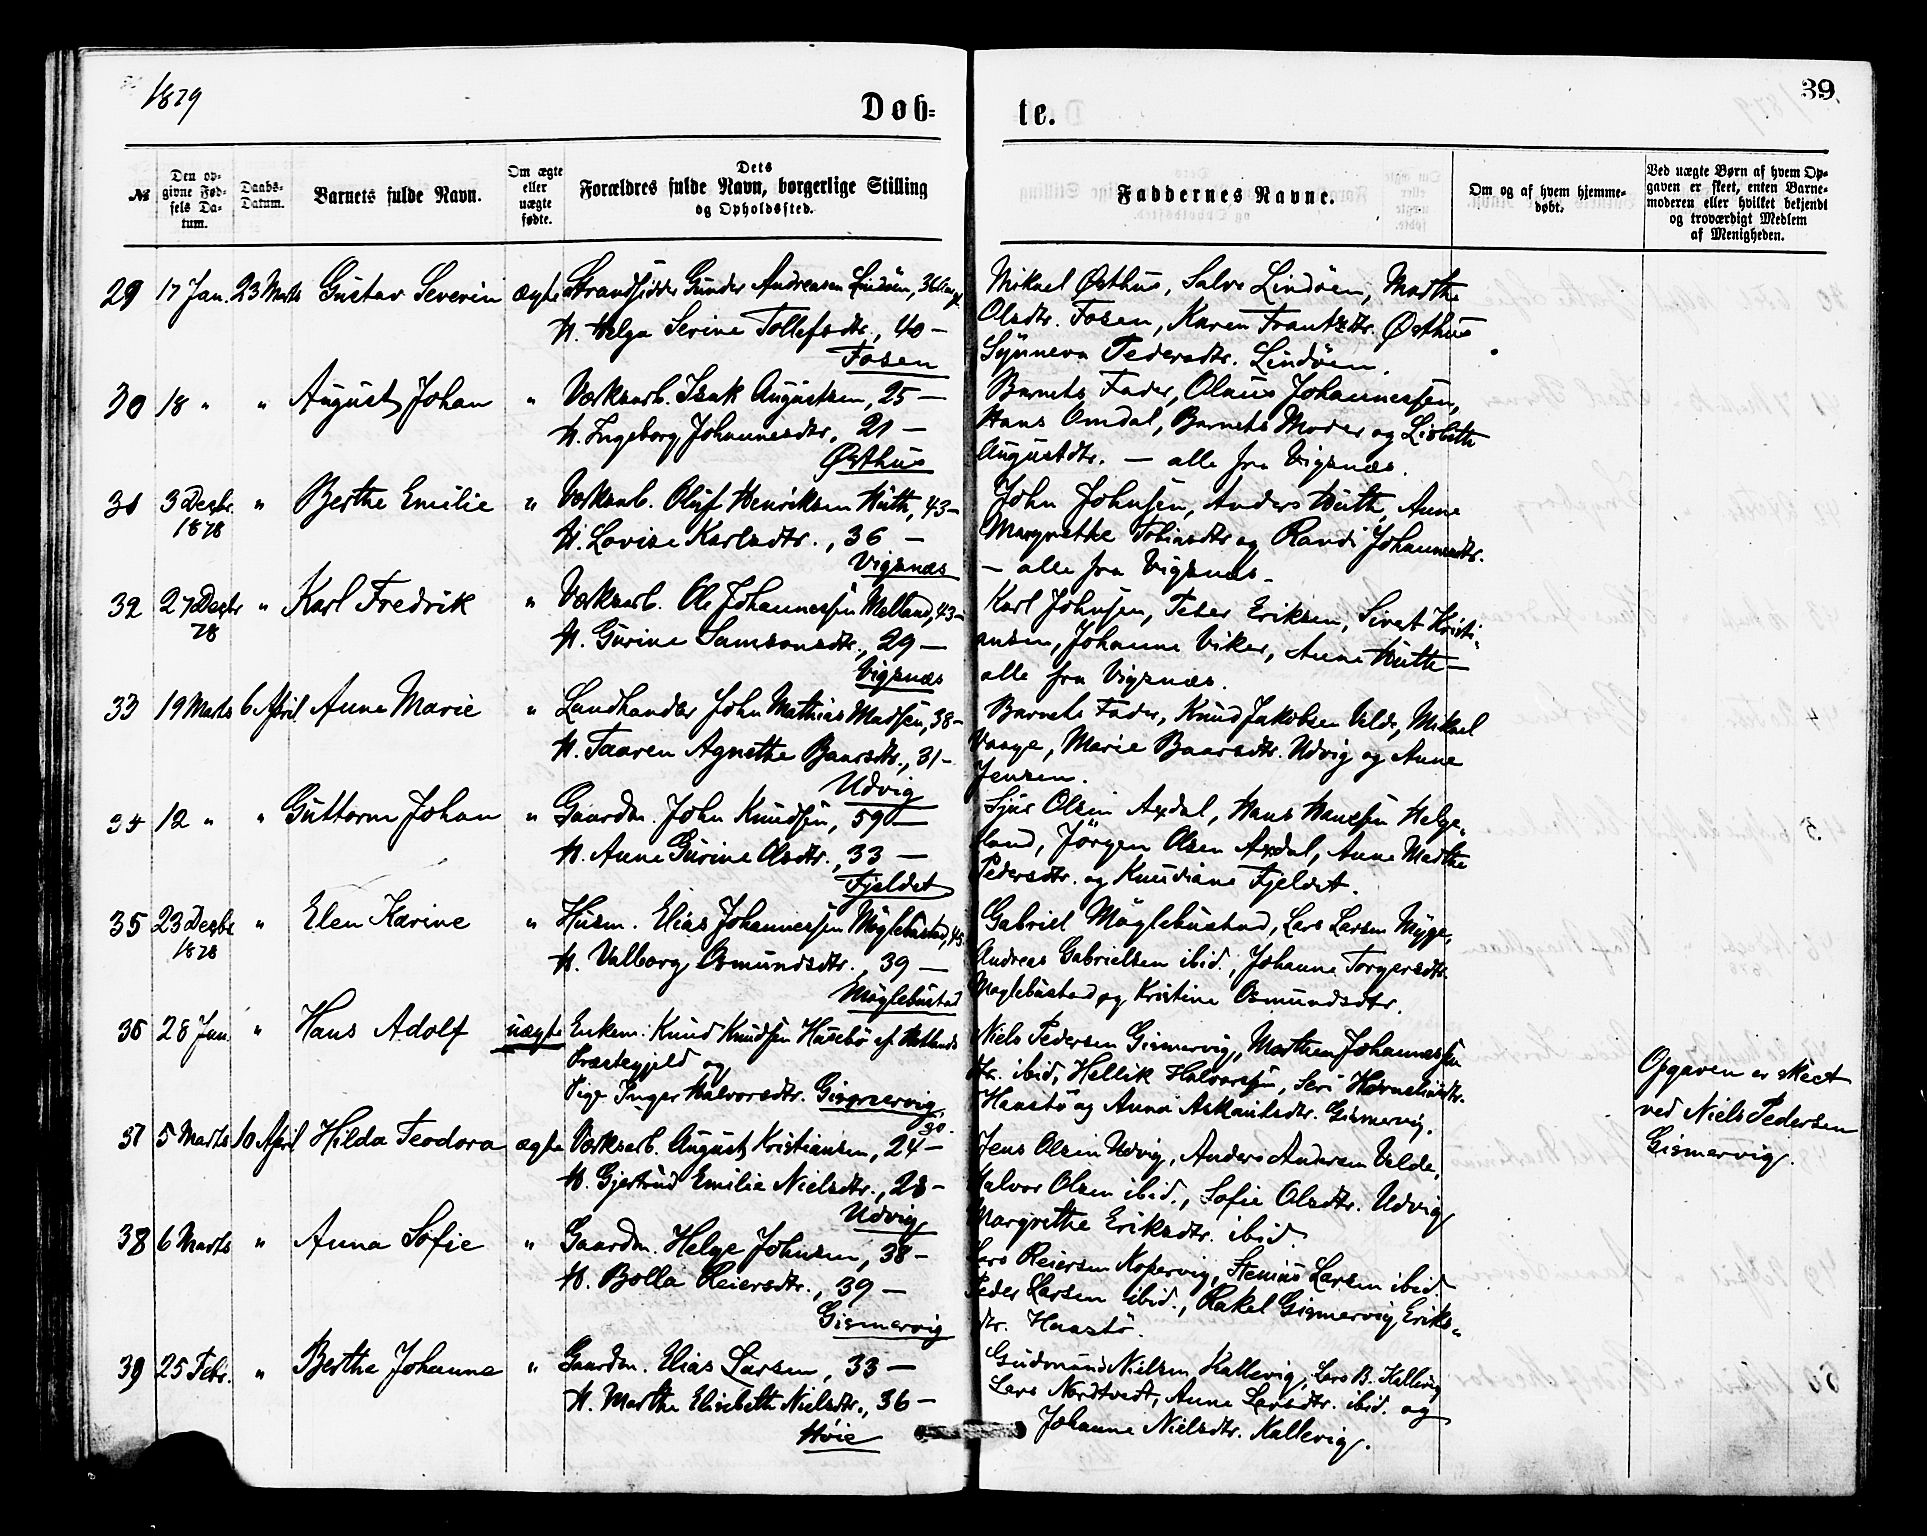 1879
39
Døb-
te.
№
Den op-
givne Fød-
sels Da-
tum.
Daabs-
Datum.
Barnets fulde Navn.
Om ægte
eller
uægte
fødte.
Dets
Forældres fulde Navn, borgerlige Stilling
og Opholdssted.
Faddernes Navne.
Om og af hvem hjemme-
døbt.
Ved uægte Børn af hvem Op-
gaven er skeet, enten Barne-
moderen eller hvilket bekjendt
og troværdigt Medlem
af Menigheden.
29 17 Jan. 23 Marts Gustav Severin ægte Strandsidder Gunder Andreasen Lindøen, 36
H. Helga Serine Tollefsdtr., 40 —
Fosen
Mikael Østhus, Salve Lindøen, Marthe
Olsdtr. Fosen, Karen Frantzdtr. Østhus
Synneva Pedersdtr. Lindøen.
30 18 " " August Johan " Værksarb. Isak Augustsen, 25 —
H. Ingeborg Johannesdtr., 21 —
Østhus
Barnets Fader, Olaus Johannessen,
Hans Omdal, Barnets Moder og Lisbeth
Augustdtr. — alle fra Vigsnæs.
31 3 Dezbr. " Berthe Emilie " Værksarb. Oluf Henriksen Huth, 43 —
1878
H. Lovise Karlsdtr., 36 —
Vigsnæs
John Johnsen, Anders Huth, Anne
Margrethe Tobiasdtr og Randi Johannesdtr.
— alle fra Vigsnæs —
32 27 Dezbr " Karl Fredrik " Værksarb. Ole Johannessen Melland, 43 —
78
H. Gurine Samsonsdtr., 29 —
Vigsnæs
Karl Johnsen, Peter Eriksen, Sivert Kristi-
ansen, Johanne Viker, Anne Huth —
alle fra Vigsnæs.
33 19 Marts 6 April Anne Marie " Landhandler John Mathias Madsen, 38 —
H. Taaren Agnethe Baarsdtr., 31 —
Udvig
Barnets Fader, Knud Jakobsen Velde, Mikael
Vaage, Marie Baarsdtr. Udvig og Anne
Jensen.
34 12 " " Guttorm Johan " Gaardm. John Knudsen, 59 —
H. Anne Gurine Olsdtr., 33 —
Fjeldet
Sjur Olsen Axdal, Hans Hansen Helge-
land, Jörgen Olsen Axdal, Anne Marthe
Pedersdtr. og Knudiane Fjeldet.
35 23 Dezbr " Elen Karine " Husm. Elias Johannessen Møglebustad, 45
1878
H. Valborg Osmundsdtr., 39 —
Møglebustad
Gabriel Møglebustad, Lars Larsen Myge,
Andreas Gabrielsen ibid., Johanne Torgersdtr.
Møglebustad og Kristine Osmundsdtr.
36 28 Jan. " Hans Adolf uægte Enkem. Knud Knudsen Husebø af
Præstegjeld og
Pige Inger Halvorsdtr. Gismervig,
30.
Niels Pedersen Gismervig, Marthen Johannessen
ibid, Hellik Halvorsen, Seri Kornelius dtr.
Haastø og Anna Askautsdtr. Gismervig.
Opgaven er skeet
ved Niels Pedersen
Gismervig.
37 5 Marts 10 April Hilda Teodora ægte Værksarb. August Kristiansen, 24 —
H. Gjertrud Emilie Nielsdtr., 28 —
Udvig
Jens Olsen Udvig, Anders Andersen Velde,
Halvor Olsen ibid., Sofie Olsdtr. Udvig
Margrethe Eriksdtr. ibid.
38 6 Marts " Anna Sofie " Gaardm. Helge Johnsen, 38 —
H. Bolla Reiersdtr., 39 —
Gismervig
Lars Reiersen Kopervig, Stenius Larsen ibid.
Peder Larsen ibid., Rakel Gismervig, Eriks-
dtr. Haastø.
39 25 Febr. " Berthe Johanna " Gaardm. Elias Larsen, 33 —
H. Marthe Elisebeth Nielsdtr., 36 —
Høie
Gudmund Nielsen Kallevig, Lars B. Kallevig
Lars Nordtvedt, Anne Larsdtr. ibid. og
Johanne Nielsdtr. Kallevig.